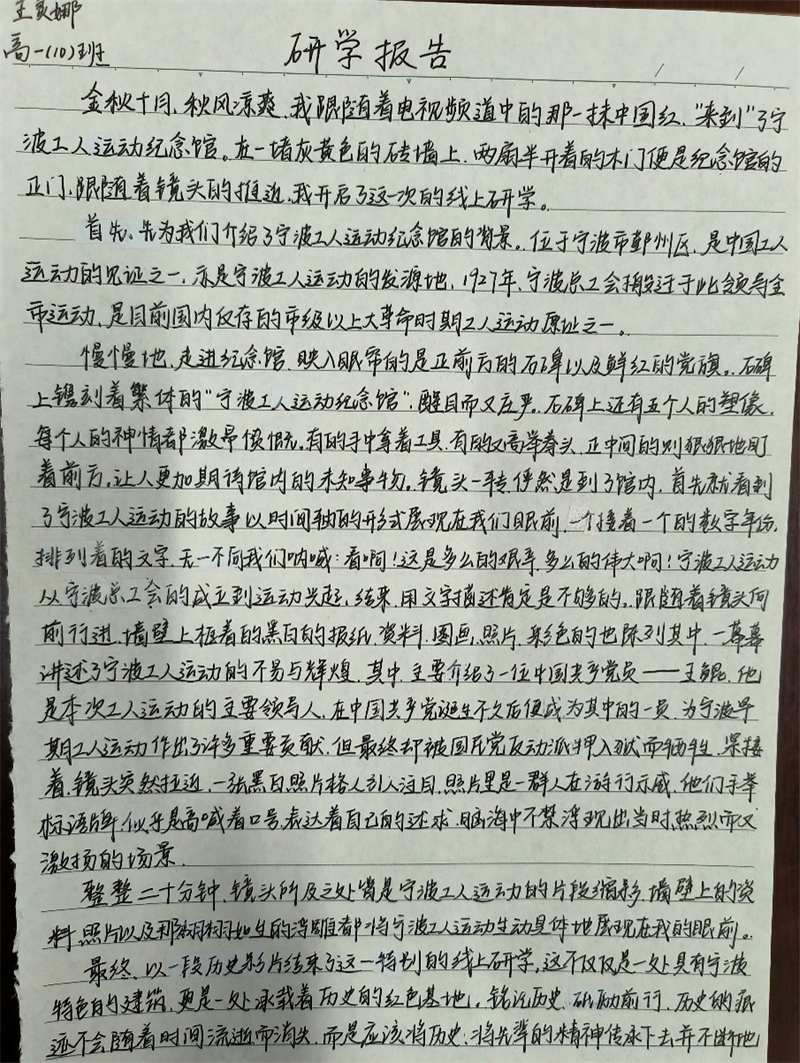 王奕娜
高一(10)班
研学报告
金秋十月，秋风凉爽，我跟随着电视频道中的那一抹中国红，“来到”了宁
波工人运动纪念馆。在一堵灰黄色的砖墙上，两扇半开着的木门便是纪念馆的
正门，跟随着镜头的推进，我开启了这一次的线上研学。
首先，先为我们介绍了宁波工人运动纪念馆的背景。位于宁波市鄞州区，是中国工人
运动的见证之一，亦是宁波工人运动的发源地，1927年，宁波总工会搬迁于此领导全
市运动，是目前国内仅存的市级以上大革命时期工人运动原址之一。
慢慢地，走进纪念馆，映入眼帘的是正前方的石碑以及鲜红的党旗。石碑
上镌刻着繁体的“宁波工人运动纪念馆”，醒目而又庄严。石碑上还有五个人的塑像，
每个人的神情都激昂愤慨，有的手中拿着工具，有的又高举拳头，正中间的则狠狠地盯
着前方，让人更加期待馆内的未知事物。镜头一转，俨然是到了馆内，首先就看到
了宁波工人运动的故事以时间轴的形式展现在我们眼前，一个接着一个的数字年份，
排列着的文字，无一不向我们呐喊：看啊！这是多么的艰辛，多么的伟大啊！宁波工人运动
从宁波总工会的成立到运动兴起，结束，用文字描述肯定是不够的。跟随着镜头向
前行进，墙壁上框着的黑白的报纸，资料，图画，照片，彩色的也陈列其中，一幕幕
讲述了宁波工人运动的不易与辉煌，其中，主要介绍了一位中国共产党员——王鲲，他
是本次工人运动的主要领导人，在中国共产党诞生不久后便成为其中的一员，为宁波早
期工人运动作出了许多重要贡献，但最终却被国民党反动派押入而牺牲，紧接
着，镜头突然拉近，一张黑白照片格人引人注目，照片里是一群人在游行示威，他们手举
标语牌，似乎是高喊着口号，表达着自己的述求，脑海中不禁浮现出当时热烈而又
激扬的场景。
整整二十分钟，镜头所及之处皆是宁波工人运动的片段缩影，墙壁上的资
料，照片以及那栩栩如生的浮雕都将宁波工人运动生动具体地展现在我的眼前。
最终，以一段历史影片结束了这一特别的线上研学，这不仅仅是一处具有宁波
特色的建筑，更是一处承载着历史的红色基地。铭记历史，砥砺前行，历史的痕
迹不会随着时间流逝而消失，而是应该将历史，将先辈的精神传承下去并不断地